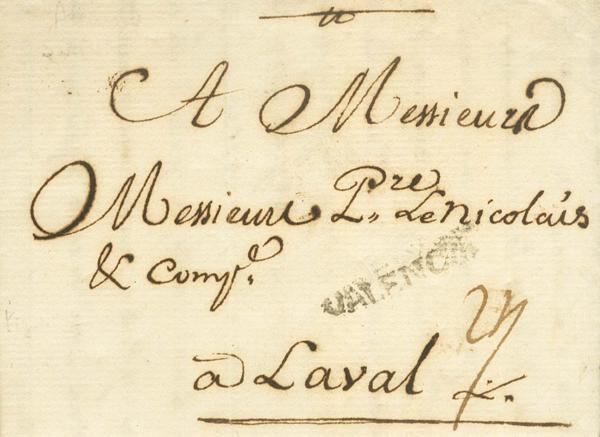 A Messieurs
Messieurs Pre L. LeNicolais
& Compe.
VALENC
a Laval